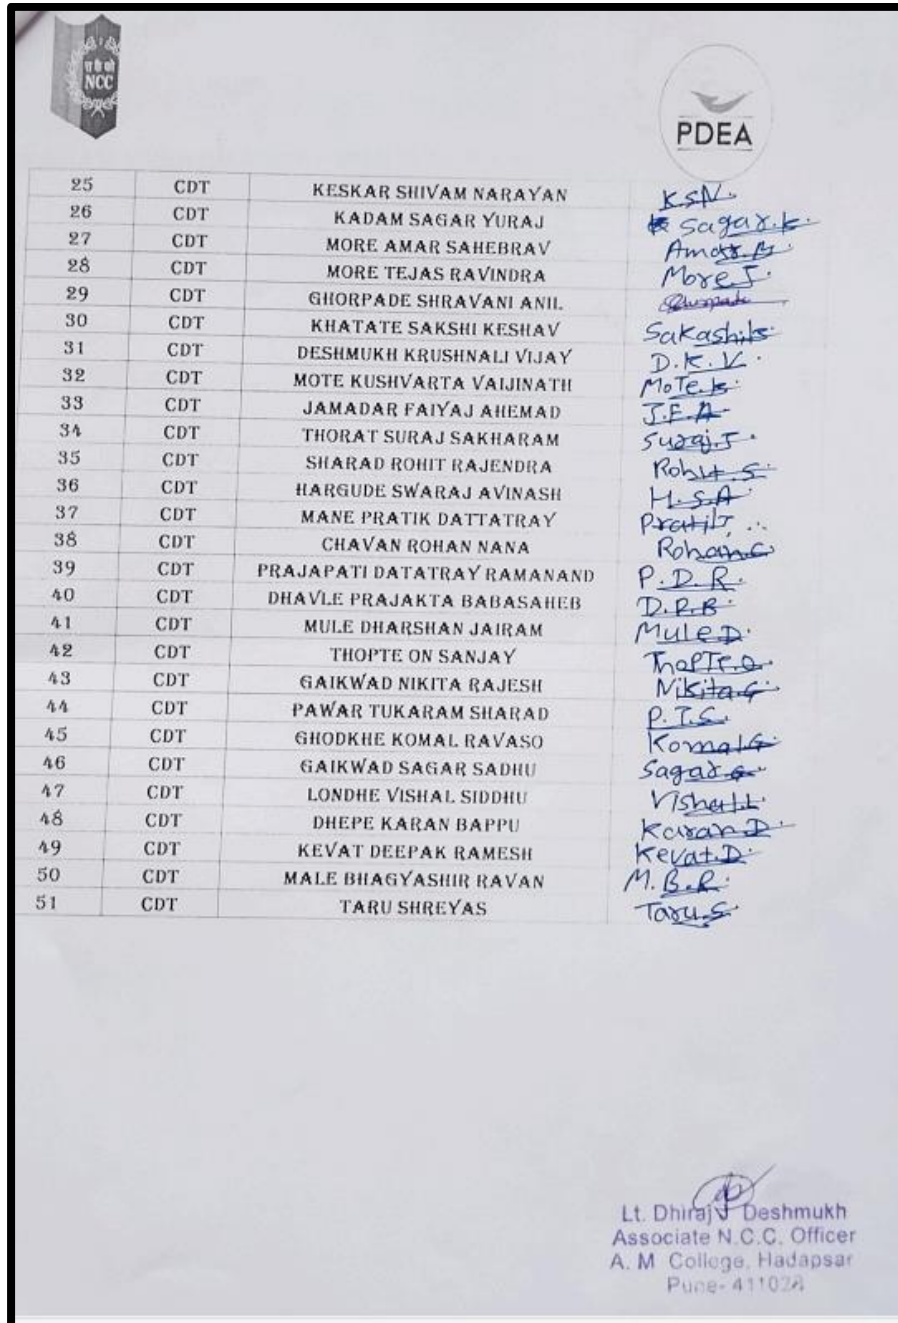 रा कै को
NCC
PDEA
25 CDT KESKAR SHIVAM NARAYAN K.S.N.
26 CDT KADAM SAGAR YURAJ Sagar.k.
27 CDT MORE AMAR SAHEBRAV Amar.
28 CDT MORE TEJAS RAVINDRA More J.
29 CDT GHORPADE SHRAVANI ANIL
30 CDT KHATATE SAKSHI KESHAV Sakashi.k
31 CDT DESHMUKH KRUSHNALI VIJAY D.K.V.
32 CDT MOTE KUSHVARTA VAIJINATH MoTe.k.
33 CDT JAMADAR FAIYAJ AHEMAD J.F.A
34 CDT THORAT SURAJ SAKHARAM Suraj.T.
35 CDT SHARAD ROHIT RAJENDRA Rohit.S.
36 CDT HARGUDE SWARAJ AVINASH H.S.A
37 CDT MANE PRATIK DATTATRAY
38 CDT CHAVAN ROHAN NANA Rohan.C.
39 CDT PRAJAPATI DATATRAY RAMANAND P.D.R.
40 CDT DHAVLE PRAJAKTA BABASAHEB D.P.B.
41 CDT MULE DHARSHAN JAIRAM Mule.D.
42 CDT THOPTE ON SANJAY ThopTe.O.
43 CDT GAIKWAD NIKITA RAJESH Nikita.G
44 CDT PAWAR TUKARAM SHARAD P.T.S.
45 CDT GHODKHE KOMAL RAVASO Komal.G
46 CDT GAIKWAD SAGAR SADHU Sagar.G.
47 CDT LONDHE VISHAL SIDDHU Vishal.L.
48 CDT DHEPE KARAN BAPPU Karan.D.
49 CDT KEVAT DEEPAK RAMESH Kevat.D.
50 CDT MALE BHAGYASHIR RAVAN M.B.R.
51 CDT TARU SHREYAS Taru.S.
Lt. Dhiraj J Deshmukh
Associate N.C.C. Officer
A. M College, Hadapsar
Pune- 411028